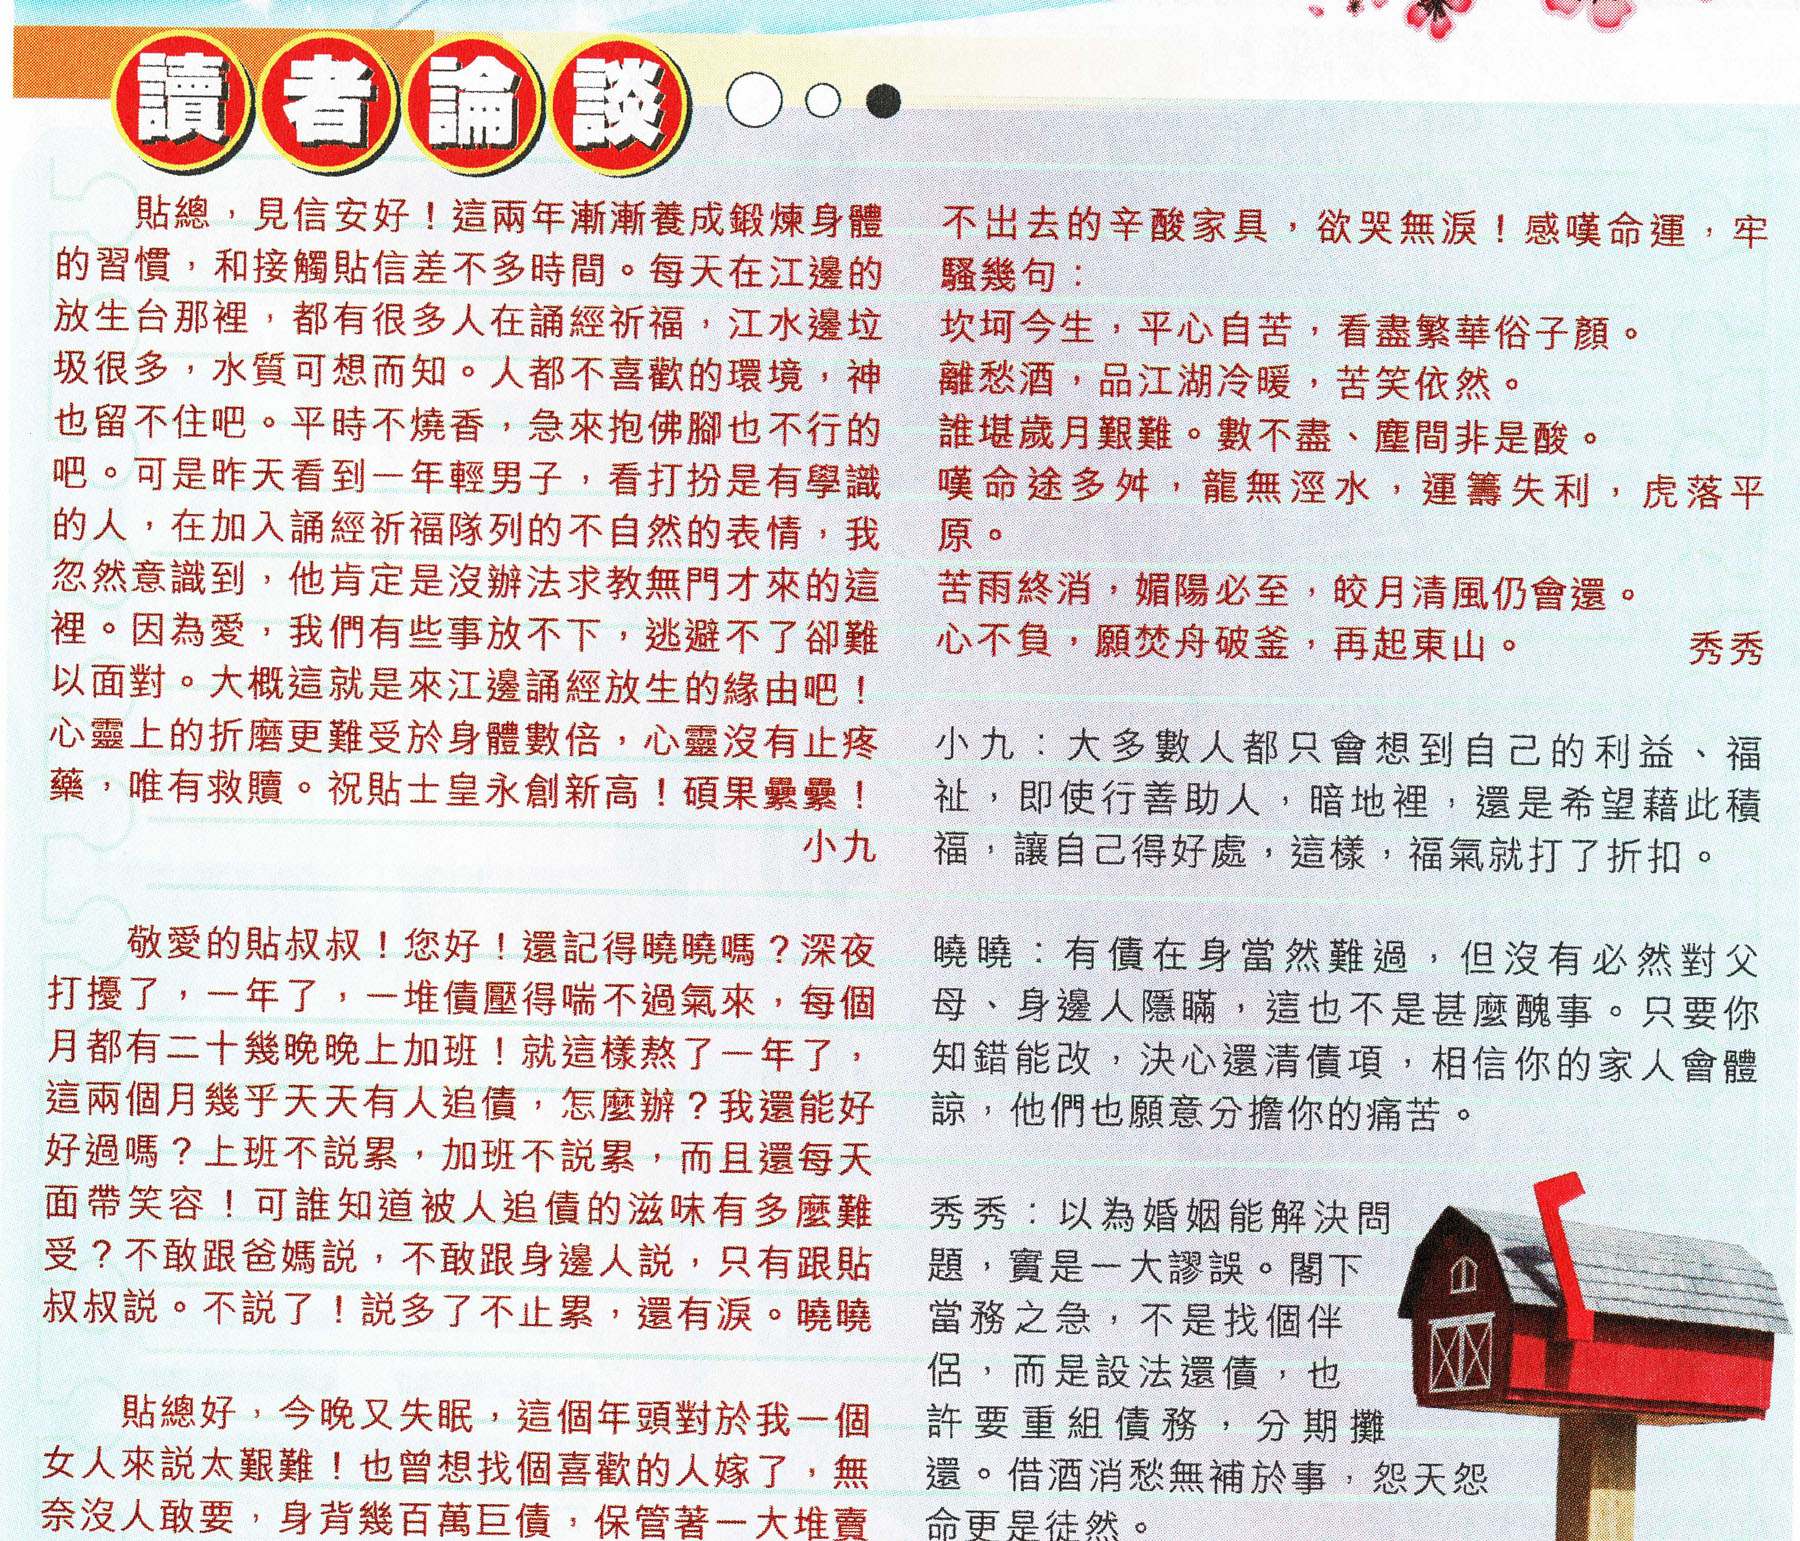 讀者論談
貼總，見信安好！這兩年漸漸養成鍛煉身體
的習慣，和接觸貼信差不多時間。每天在江邊的
放生台那裡，都有很多人在誦經祈福，江水邊垃
圾很多，水質可想而知。人都不喜歡的環境，神
也留不住吧。平時不燒香，急來抱佛腳也不行的
吧。可是昨天看到一年輕男子，看打扮是有學識
的人，在加入誦經祈福隊列的不自然的表情，我
忽然意識到，他肯定是沒辦法求教無門才來的這
裡。因為愛，我們有些事放不下，逃避不了卻難
以面對。大概這就是來江邊誦經放生的緣由吧！
心靈上的折磨更難受於身體數倍，心靈沒有止疼
藥，唯有救贖。祝貼士皇永創新高！碩果纍纍！
小九
敬愛的貼叔叔！您好！還記得曉曉嗎？深夜
打擾了，一年了，一堆債壓得喘不過氣來，每個
月都有二十幾晚晚上加班！就這樣熬了一年了，
這兩個月幾乎天天有人追債，怎麼辦？我還能好
好過嗎？上班不説累，加班不説累，而且還每天
面帶笑容！可誰知道被人追債的滋味有多麼難
受？不敢跟爸媽説，不敢跟身邊人説，只有跟貼
叔叔説。不説了！説多了不止累，還有淚。曉曉
貼總好，今晚又失眠，這個年頭對於我一個
女人來説太艱難！也曾想找個喜歡的人嫁了，無
奈沒人敢要，身背幾百萬巨債，保管著一大堆賣
不出去的辛酸家具，欲哭無淚！感嘆命運，牢
騷幾句：
坎坷今生，平心自苦，看盡繁華俗子顏。
離愁酒，品江湖冷暖，苦笑依然。
誰堪歲月艱難。數不盡、塵間非是酸。
嘆命途多舛，龍無涇水，運籌失利，虎落平
原。
苦雨終消，媚陽必至，皎月清風仍會還。
心不負，願焚舟破釜，再起東山。 秀秀
小九：大多數人都只會想到自己的利益、福
祉，即使行善助人，暗地裡，還是希望藉此積
福，讓自己得好處，這樣，福氣就打了折扣。
曉曉：有債在身當然難過，但沒有必然對父
母、身邊人隱瞞，這也不是甚麼醜事。只要你
知錯能改，決心還清債項，相信你的家人會體
諒，他們也願意分擔你的痛苦。
秀秀：以為婚姻能解決問
題，實是一大謬誤。閣下
當務之急，不是找個伴
侶，而是設法還債，也
許要重組債務，分期攤
還。借酒消愁無補於事，怨天怨
命更是徒然。